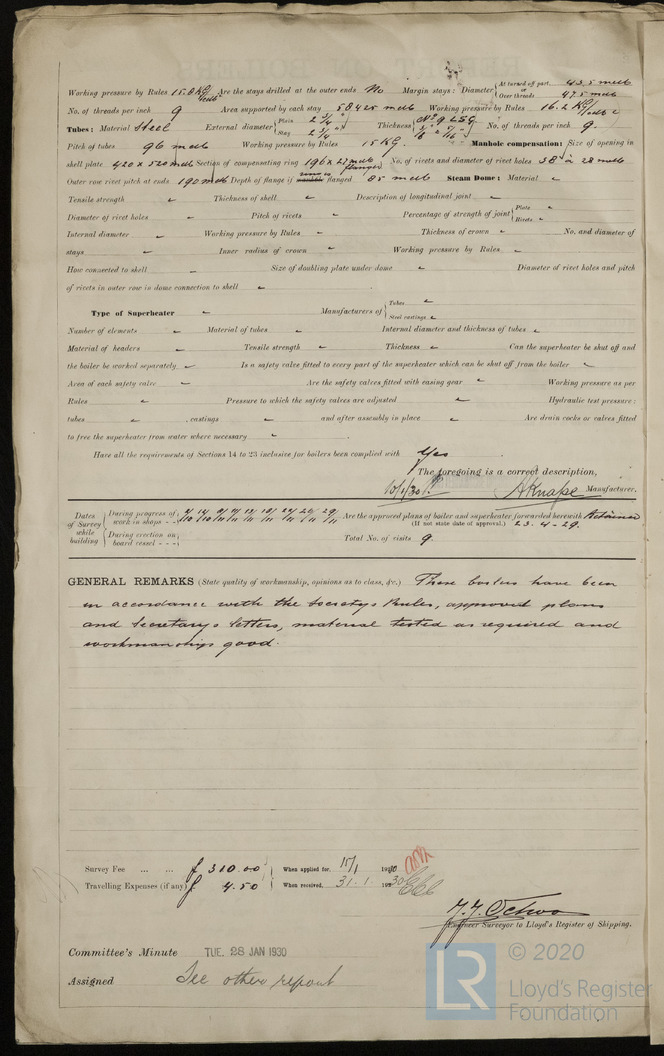 At turned off part. 43.5 m/m
Working pressure by Rules 15.8 KG Are the stays drilled at the outer ends No Margin stays: Diameter Over threads 47.5 m/m
No. of threads per inch 9 Area supported by each stay 58425 m/m Working pressure by Rules 16.2 KG
Tubes: Material Steel External diameter Plain 2 3/4" Stay 2 3/4" Thickness No. of threads per inch 9.
Pitch of tubes 96 m/m Working pressure by Rules 15 KG. Manhole compensation: Size of opening in
shell plate 420 x 520 m/m Section of compensating ring 196 x 27 m/m No. of rivets and diameter of rivet holes 38 à 28 m/m
Outer row rivet pitch at ends 190 m/m Depth of flange if flanged 85 m/m Steam Dome: Material
Tensile strength Thickness of shell Description of longitudinal joint
Diameter of rivet holes Pitch of rivets Percentage of strength of joint Plate Rivets
Internal diameter Working pressure by Rules Thickness of crown No. and diameter of
stays Inner radius of crown Working pressure by Rules
How connected to shell Size of doubling plate under dome Diameter of rivet holes and pitch
of rivets in outer row in dome connection to shell
Type of Superheater Manufacturers of Tubes Steel castings
Number of elements Material of tubes Internal diameter and thickness of tubes
Material of headers Tensile strength Thickness Can the superheater be shut off and
the boiler be worked separately Is a safety valve fitted to every part of the superheater which can be shut off from the boiler
Area of each safety valve Are the safety valves fitted with easing gear Working pressure as per
Rules Pressure to which the safety valves are adjusted Hydraulic test pressure:
tubes , castings and after assembly in place Are drain cocks or valves fitted
to free the superheater from water where necessary
Have all the requirements of Sections 14 to 23 inclusive for boilers been complied with Yes
The foregoing is a correct description,
10/1/30 AKnape Manufacturer.
Dates of Survey while building
During progress of work in shops - - Are the approved plans of boiler and superheater forwarded herewith Retained
(If not state date of approval.) 23.4-29.
During erection on board vessel - - - Total No. of visits 9.
GENERAL REMARKS (State quality of workmanship, opinions as to class, &c.) These boilers have been
in accordance with the Society's Rules, approved plans
and Secretary's letters, material tested as required and
workmanship good.
Survey Fee ... ... f 310.00 When applied for, 1930
Travelling Expenses (if any) f 4.50 When received, 31.1.1930
Engineer Surveyor to Lloyd's Register of Shipping.
Committee's Minute TUE. 28 JAN 1930
Assigned See other report
© 2020
LR
Lloyd's Register
Foundation